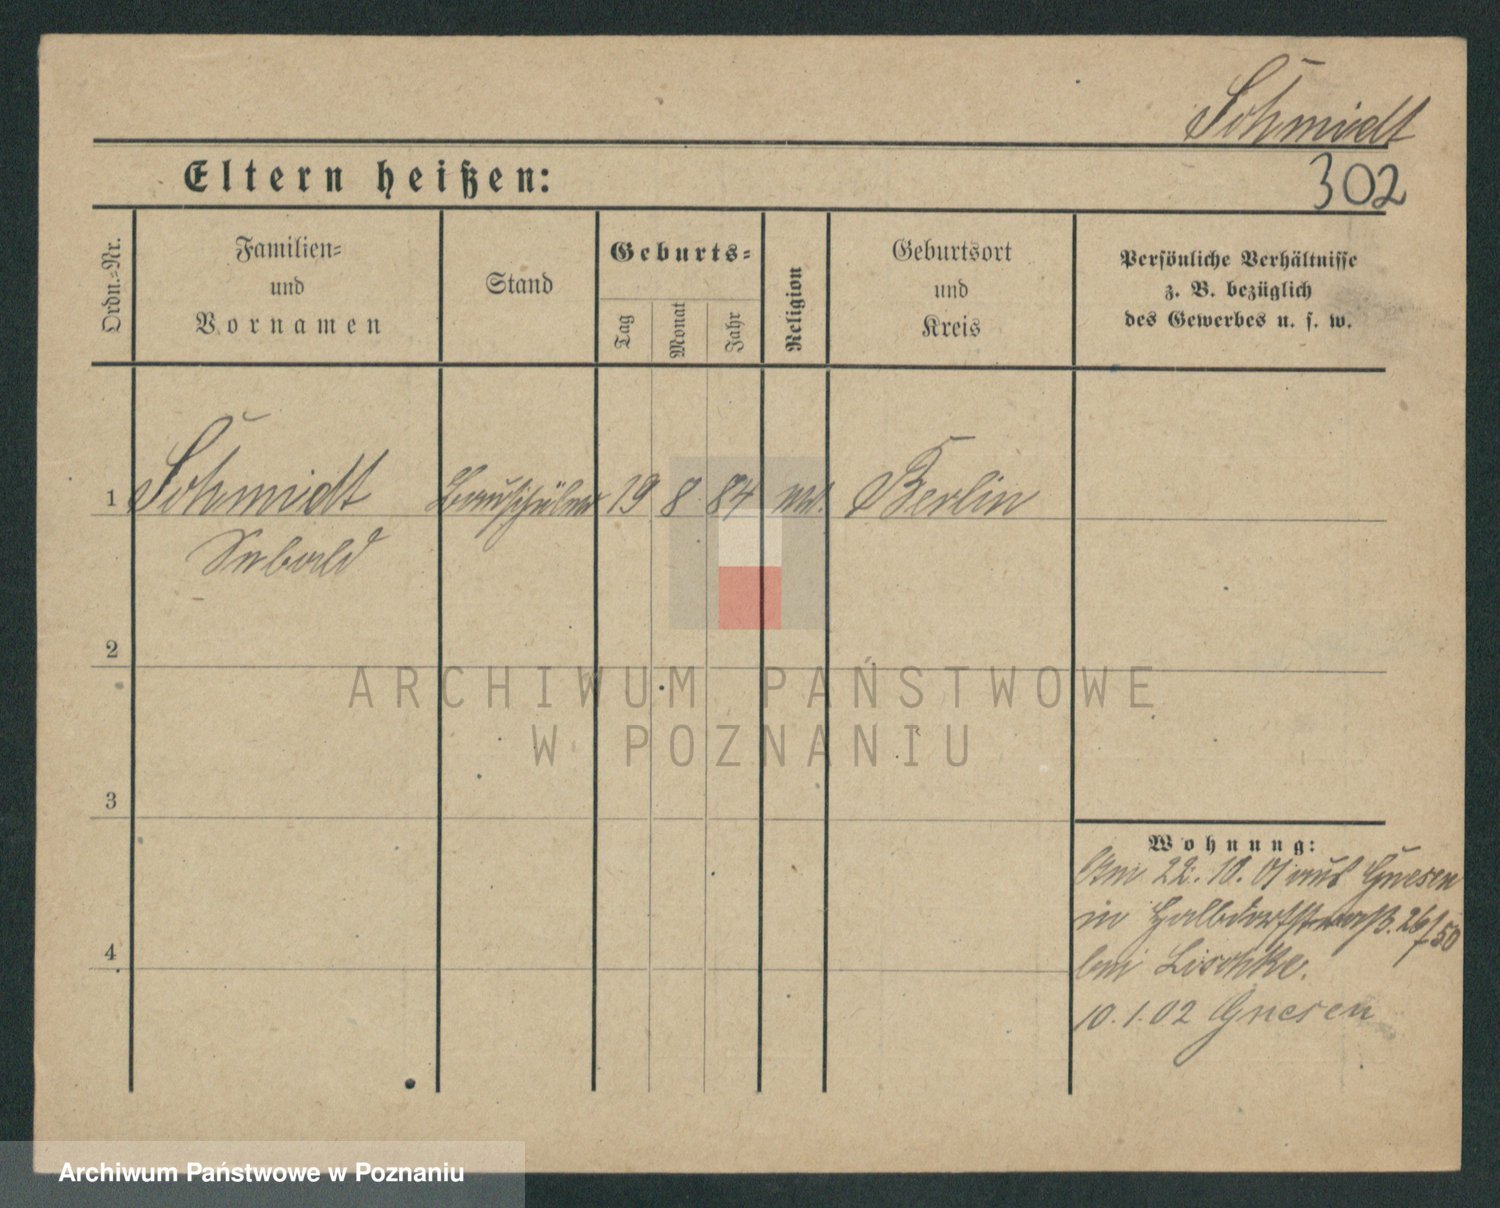 Schmidt
302
Eltern heißen:
Ordn.-Nr.
Familien-
und
Vornamen
Stand
Geburts-
Tag
Monat
Jahr
Religion
Geburtsort
und
Kreis
Persönliche Verhältnisse
z. B. bezüglich
des Gewerbes u. s. w.
1 Schmidt Bauschüler 19 8 84 Berlin
2
3
4
Wohnung:
Am 22. 10. 01 aus Gnesen
in Halbdorfstraß. 26/50
bei Lischke.
10. 1. 02 Gnesen
ARCHIWUM PAŃSTWOWE
W POZNANIU
Archiwum Państwowe w Poznaniu